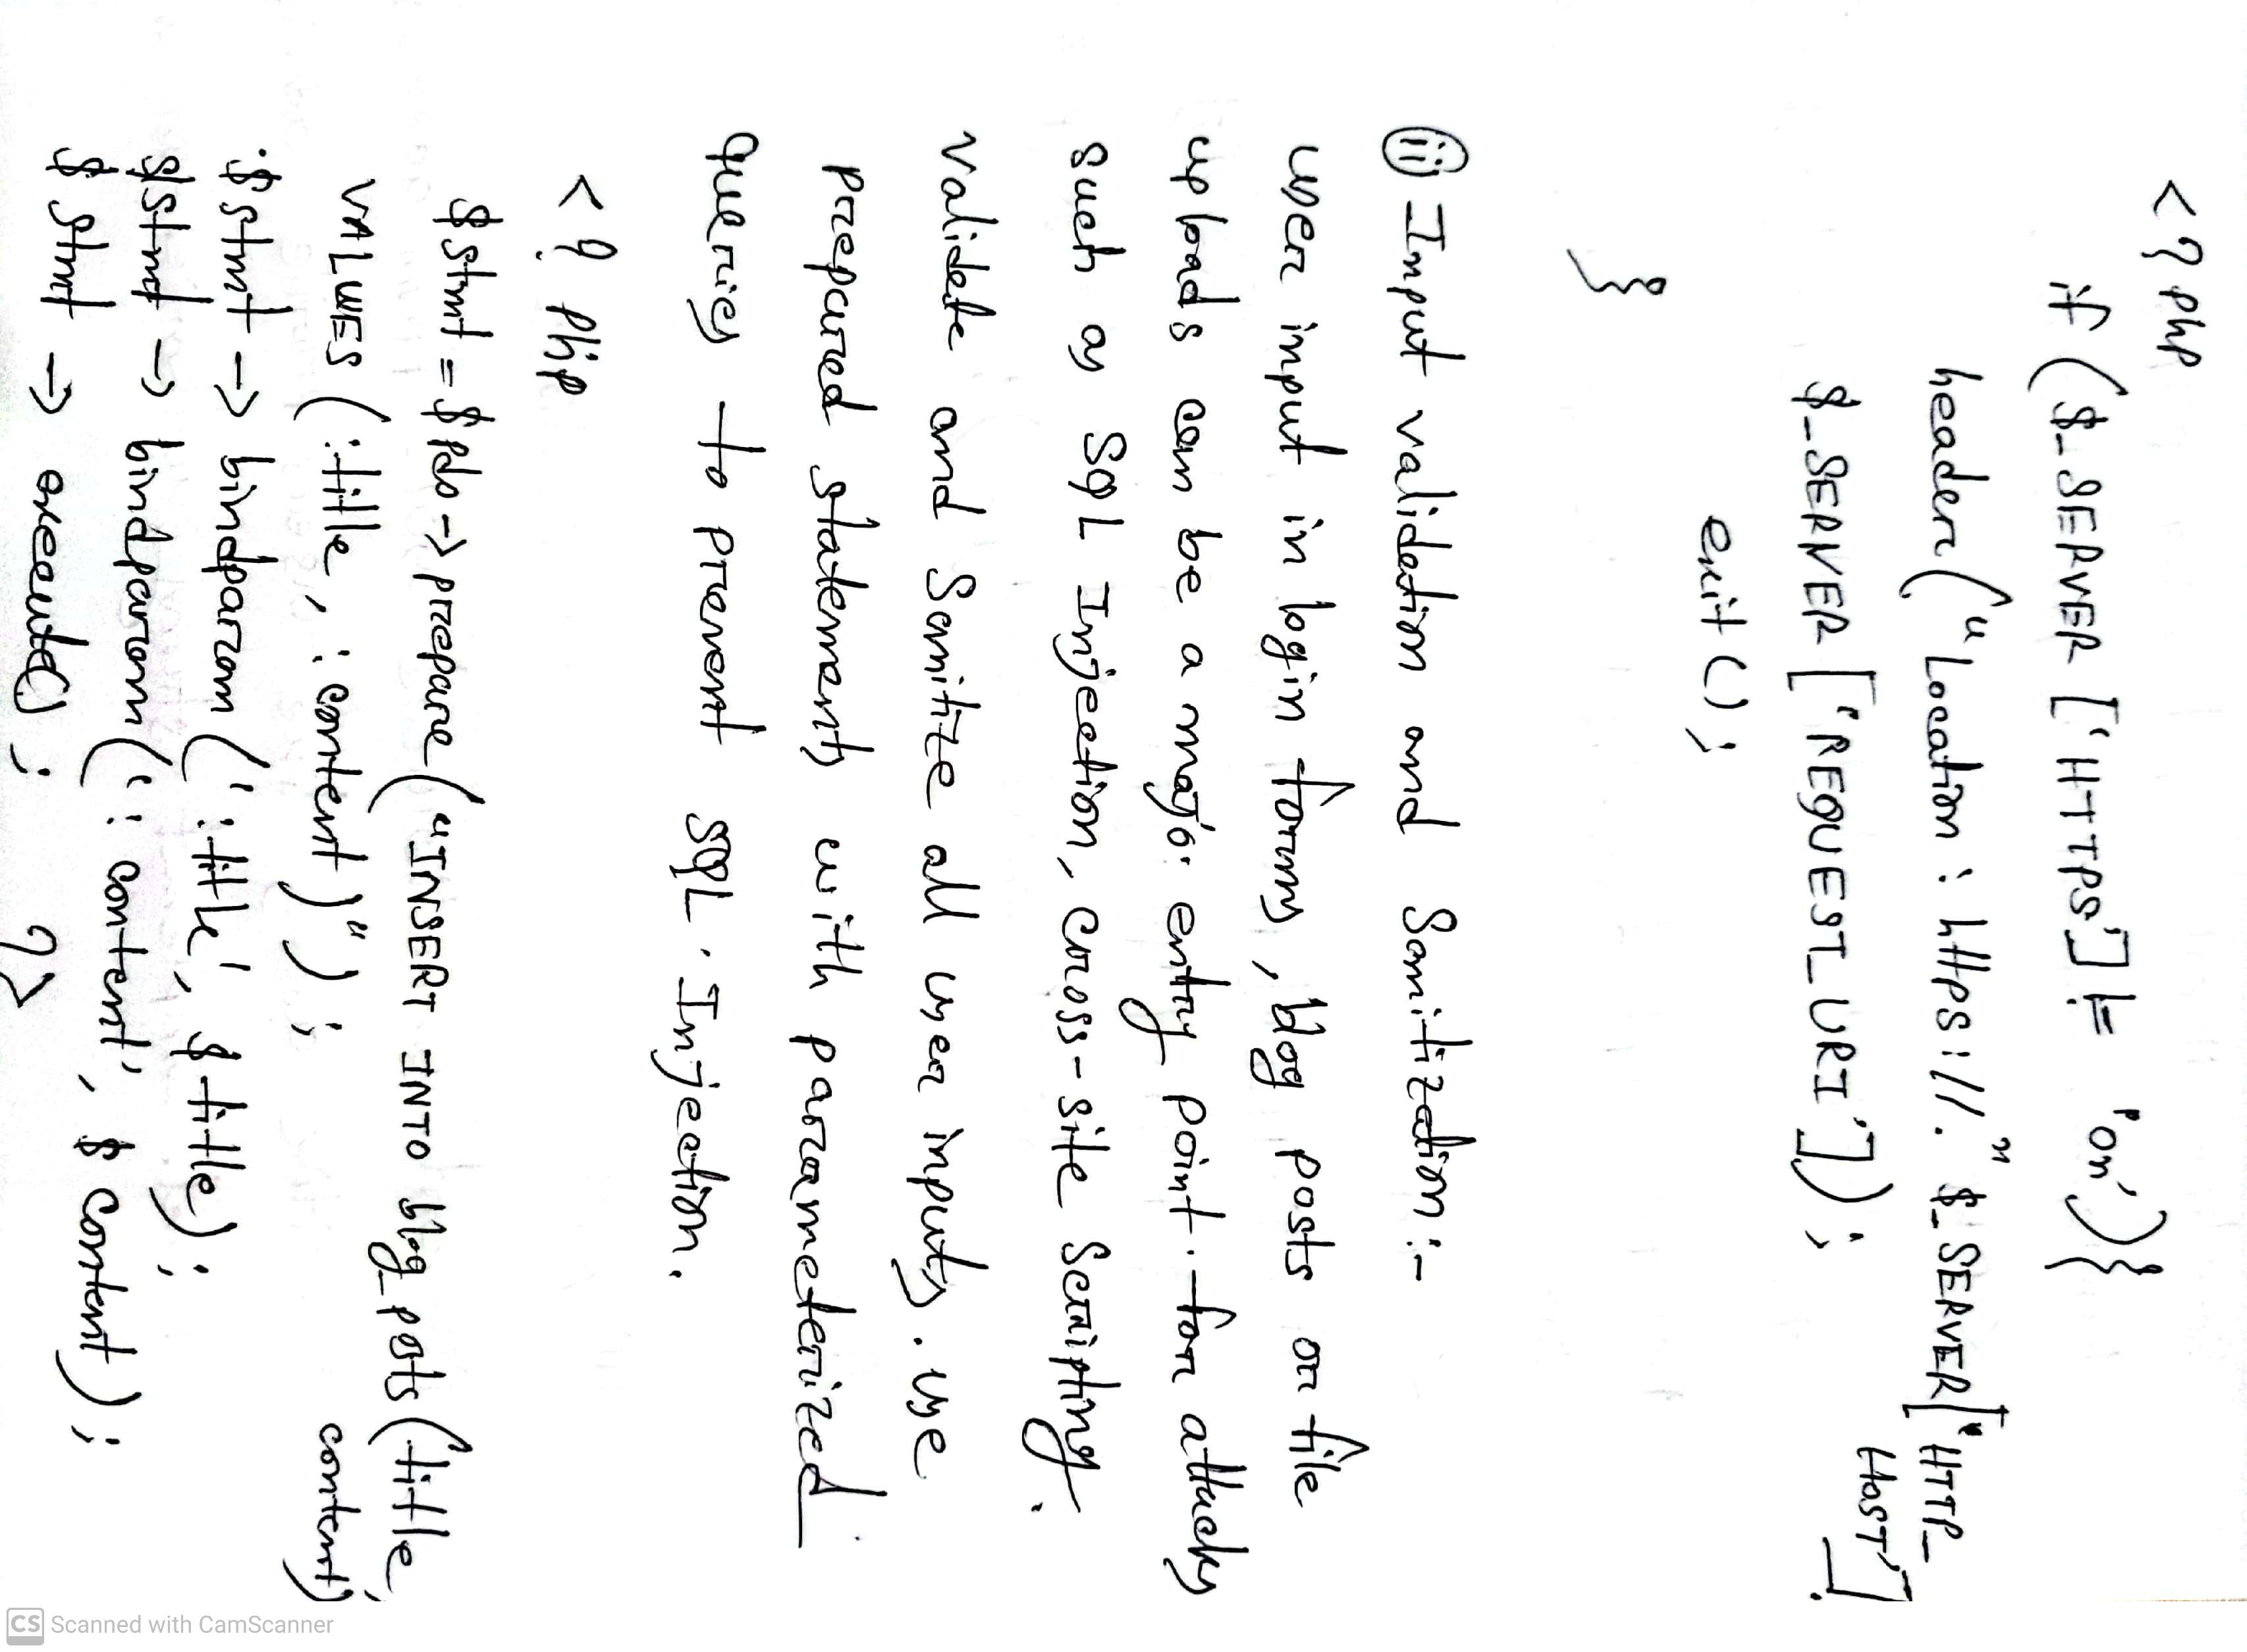 <?php
if ($_SERVER ['HTTPS'] != 'on'){
header("Location : https://." $_SERVER['HTTP_
HOST'].
$_SERVER ['REQUEST_URI']);
exit();
}
(ii) Input validation and Sanitization :-
user input in login forms, blog posts or file
uploads can be a major entry point for attacks
such as SQL Injection, cross-site scripting.
validate and Sanitize all user inputs. Use
prepared statements with parameterized
queries to prevent SQL Injection.
<? php
$stmt = $pdo -> prepare ("INSERT INTO blog_posts (title,
content)
VALUES (:title, : content)");
$stmt -> bindparam (':title', $title);
$stmt -> bindparam (': content', $content);
$stmt -> execute() ; ?>
CS Scanned with CamScanner